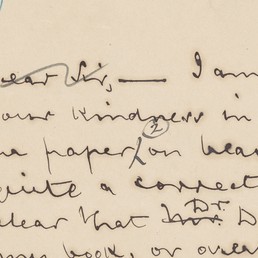 ear Sir, — I am
our kindness in
e paper (2) on bea
quite a correct
lear that Mr. Dr. D
book, or over